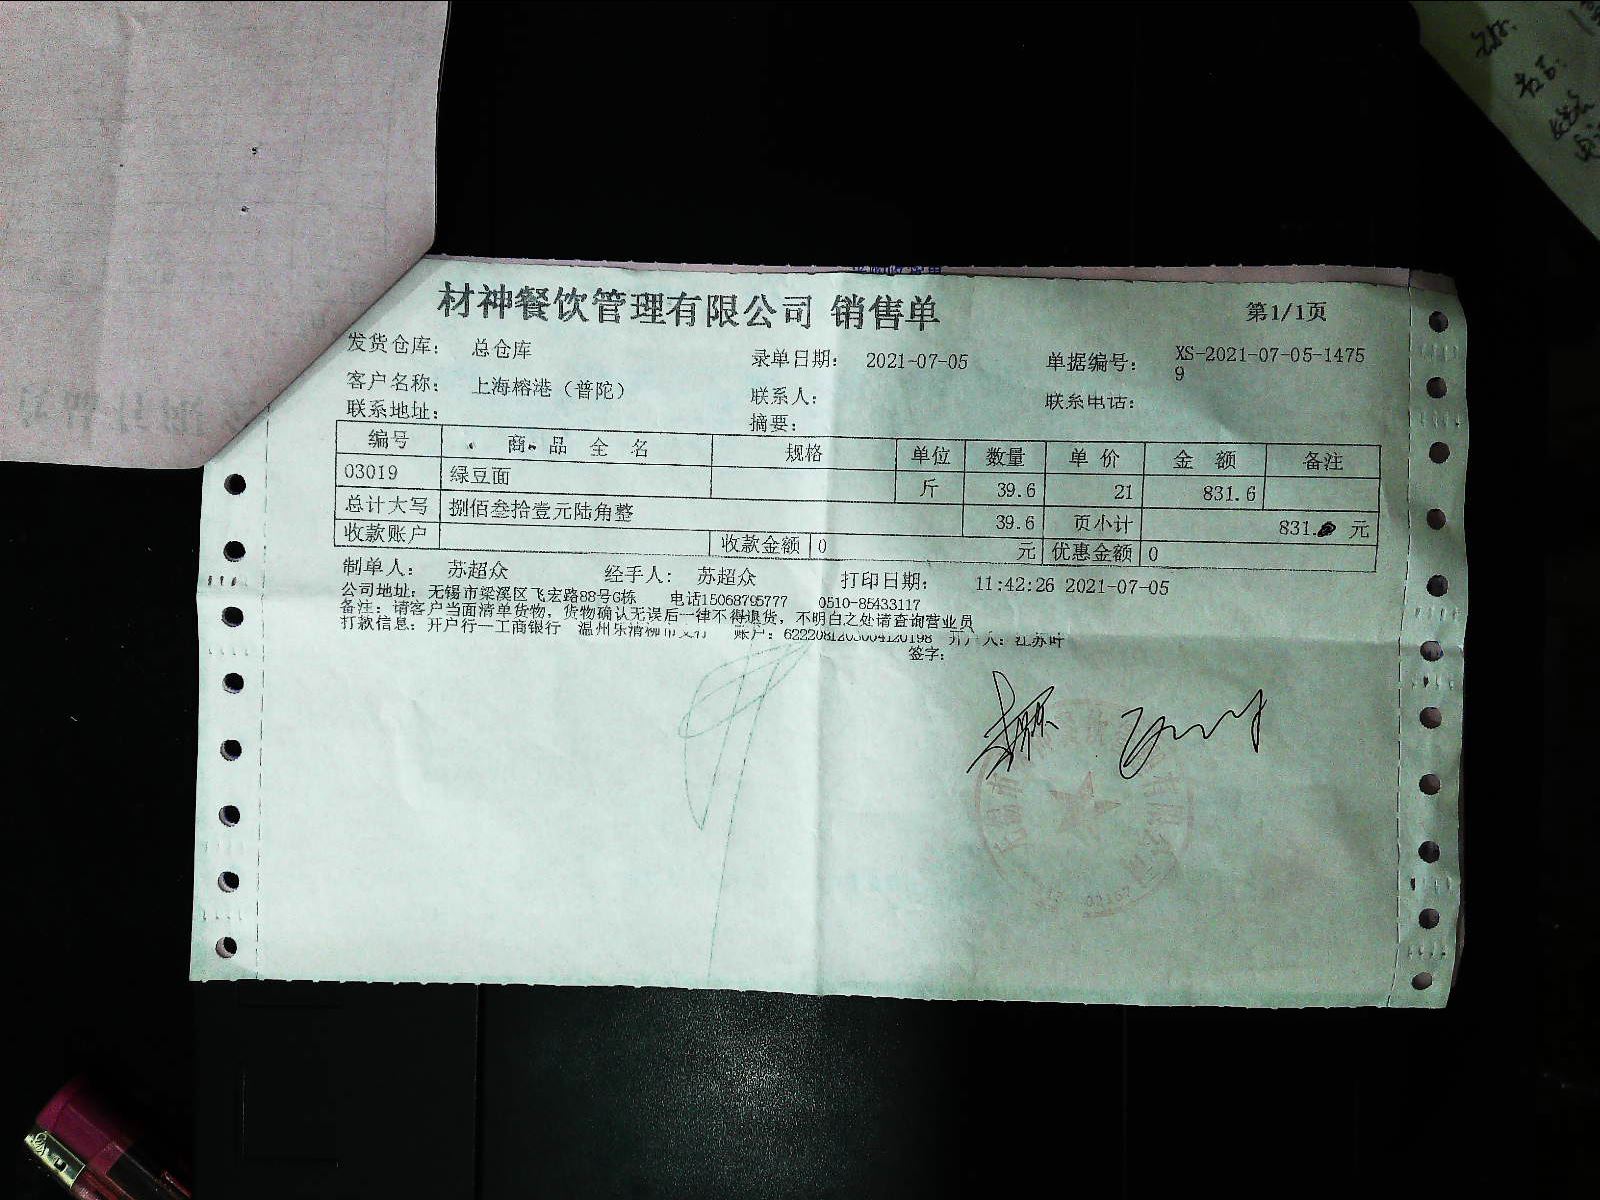 材神餐饮管理有限公司 销售单
第1/1页
发货仓库： 总仓库 录单日期： 2021-07-05 单据编号： XS-2021-07-05-1475
9
客户名称： 上海榕港（普陀） 联系人： 联系电话：
联系地址： 摘要：
编号 商 品 全 名 规格 单位 数量 单 价 金 额 备注
03019 绿豆面 斤 39.6 21 831.6
总计大写 捌佰叁拾壹元陆角整 39.6 页小计 831. 元
收款账户 收款金额 0 元 优惠金额 0
制单人： 苏超众 经手人： 苏超众 打印日期： 11:42:26 2021-07-05
公司地址：无锡市梁溪区飞宏路88号G栋 电话15068795777 0510-85433117
备注：请客户当面清单货物，货物确认无误后一律不得退货，不明白之处请查询营业员
打款信息：开户行—工商银行 温州乐清 账户：
签字：